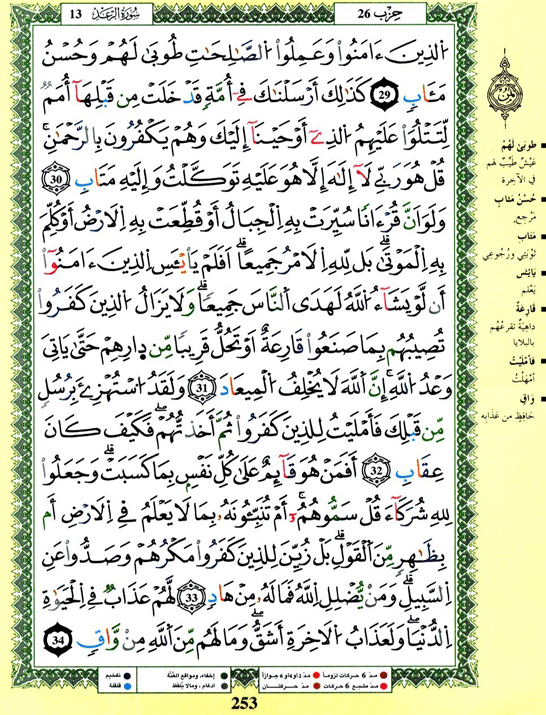 سُورَةُ الرَّعْدِ 13
حِزْب 26
اَ۬لذِينَ ءَامَنُواْ وَعَمِلُواْ اُ۬لصَّٰلِحَٰتِ طُوب۪يٰ لَهُمْ وَحُسْنُ
مَـَٔابٖ 29 كَذَٰلِكَ أَرْسَلْنَٰكَ فِےٓ أُمَّةٖ قَدْ خَلَتْ مِن قَبْلِهَآ أُمَمٞ
لِّتَتْلُوَاْ عَلَيْهِمُ اُ۬لذِےٓ أَوْحَيْنَآ إِلَيْكَ وَهُمْ يَكْفُرُونَ بِالرَّحْمَٰنِۖ
قُلْ هُوَ رَبِّے لَآ إِلَٰهَ إِلَّا هُوَ عَلَيْهِ تَوَكَّلْتُ وَإِلَيْهِ مَتَابِ 30
وَلَوَ اَنَّ قُرْءَاناٗ سُيِّرَتْ بِهِ اِ۬لْجِبَالُ أَوْ قُطِّعَتْ بِهِ اِ۬لَارْضُ أَوْ كُلِّمَ
بِهِ اِ۬لْمَوْت۪يٰۖ بَل لِّلهِ اِ۬لَامْرُ جَمِيعاًۖ اَفَلَمْ يَاْيْـَٔسِ اِ۬لذِينَ ءَامَنُوٓاْ
أَن لَّوْ يَشَآءُ اُ۬للَّهُ لَهَدَى اَ۬لنَّاسَ جَمِيعاٗۖ وَلَا يَزَالُ اُ۬لذِينَ كَفَرُواْ
تُصِيبُهُم بِمَا صَنَعُواْ قَارِعَةٌ اَوْ تَحُلُّ قَرِيباٗ مِّن دِارِهِمْ حَتَّىٰ يَاتِيَ
وَعْدُ اُ۬للَّهِۖ إِنَّ اَ۬للَّهَ لَا يُخْلِفُ اُ۬لْمِيعَادَ 31 وَلَقَدُ اُ۟سْتُهْزِۓَ بِرُسُلٖ
مِّن قَبْلِكَ فَأَمْلَيْتُ لِلذِينَ كَفَرُواْ ثُمَّ أَخَذتُّهُمْۖ فَكَيْفَ كَانَ
عِقَابِ 32 أَفَمَنْ هُوَ قَآئِمٌ عَلَىٰ كُلِّ نَفْسِۢ بِمَا كَسَبَتْۖ وَجَعَلُواْ
لِلهِ شُرَكَآءَ قُلْ سَمُّوهُمُۥٓۖ أَمْ تُنَبِّـُٔونَهُۥ بِمَا لَا يَعْلَمُ فِے اِ۬لَارْضِ أَم
بِظَٰهِرٖ مِّنَ اَ۬لْقَوْلِۖ بَلْ زُيِّنَ لِلذِينَ كَفَرُواْ مَكْرُهُمْ وَصَدُّواْ عَنِ
اِ۬لسَّبِيلِۖ وَمَنْ يُّضْلِلِ اِ۬للَّهُ فَمَا لَهُۥ مِنْ هَادٖ 33 لَّهُمْ عَذَابٞ فِے اِ۬لْحَيَوٰةِ
اِ۬لدُّنْي۪اۖ وَلَعَذَابُ اُ۬لَاخِرَةِ أَشَقُّۖ وَمَا لَهُم مِّنَ اَ۬للَّهِ مِنْ وَّاقٖ 34
ثُمُن
طُوبَىٰ لَهُمْ
عَيْشٌ طَيِّبٌ لهم
في الآخِرة
حُسْنُ مَـَٔابٍ
مَرجِعٍ
مَتَابِ
تَوْبَتِي وَرُجُوعِي
يَاْيْـَٔسِ
يَعْلَم
قَارِعَةٌ
دَاهِيَةٌ تقرعُهُم
بالبلايا
فَأَمْلَيْتُ
أمْهَلْتُ
وَاقٍ
حَافِظٍ من عَذَابِه
مدّ 6 حركات لزوماً
مدّ 2 أو 4 أو 6 جوازاً
مدّ مشبع 6 حركات
مدّ حركتان
إخفاء، ومواقع الغُنَّة
ادغام، وما لا يُلفظ
تفخيم
قلقلة
253